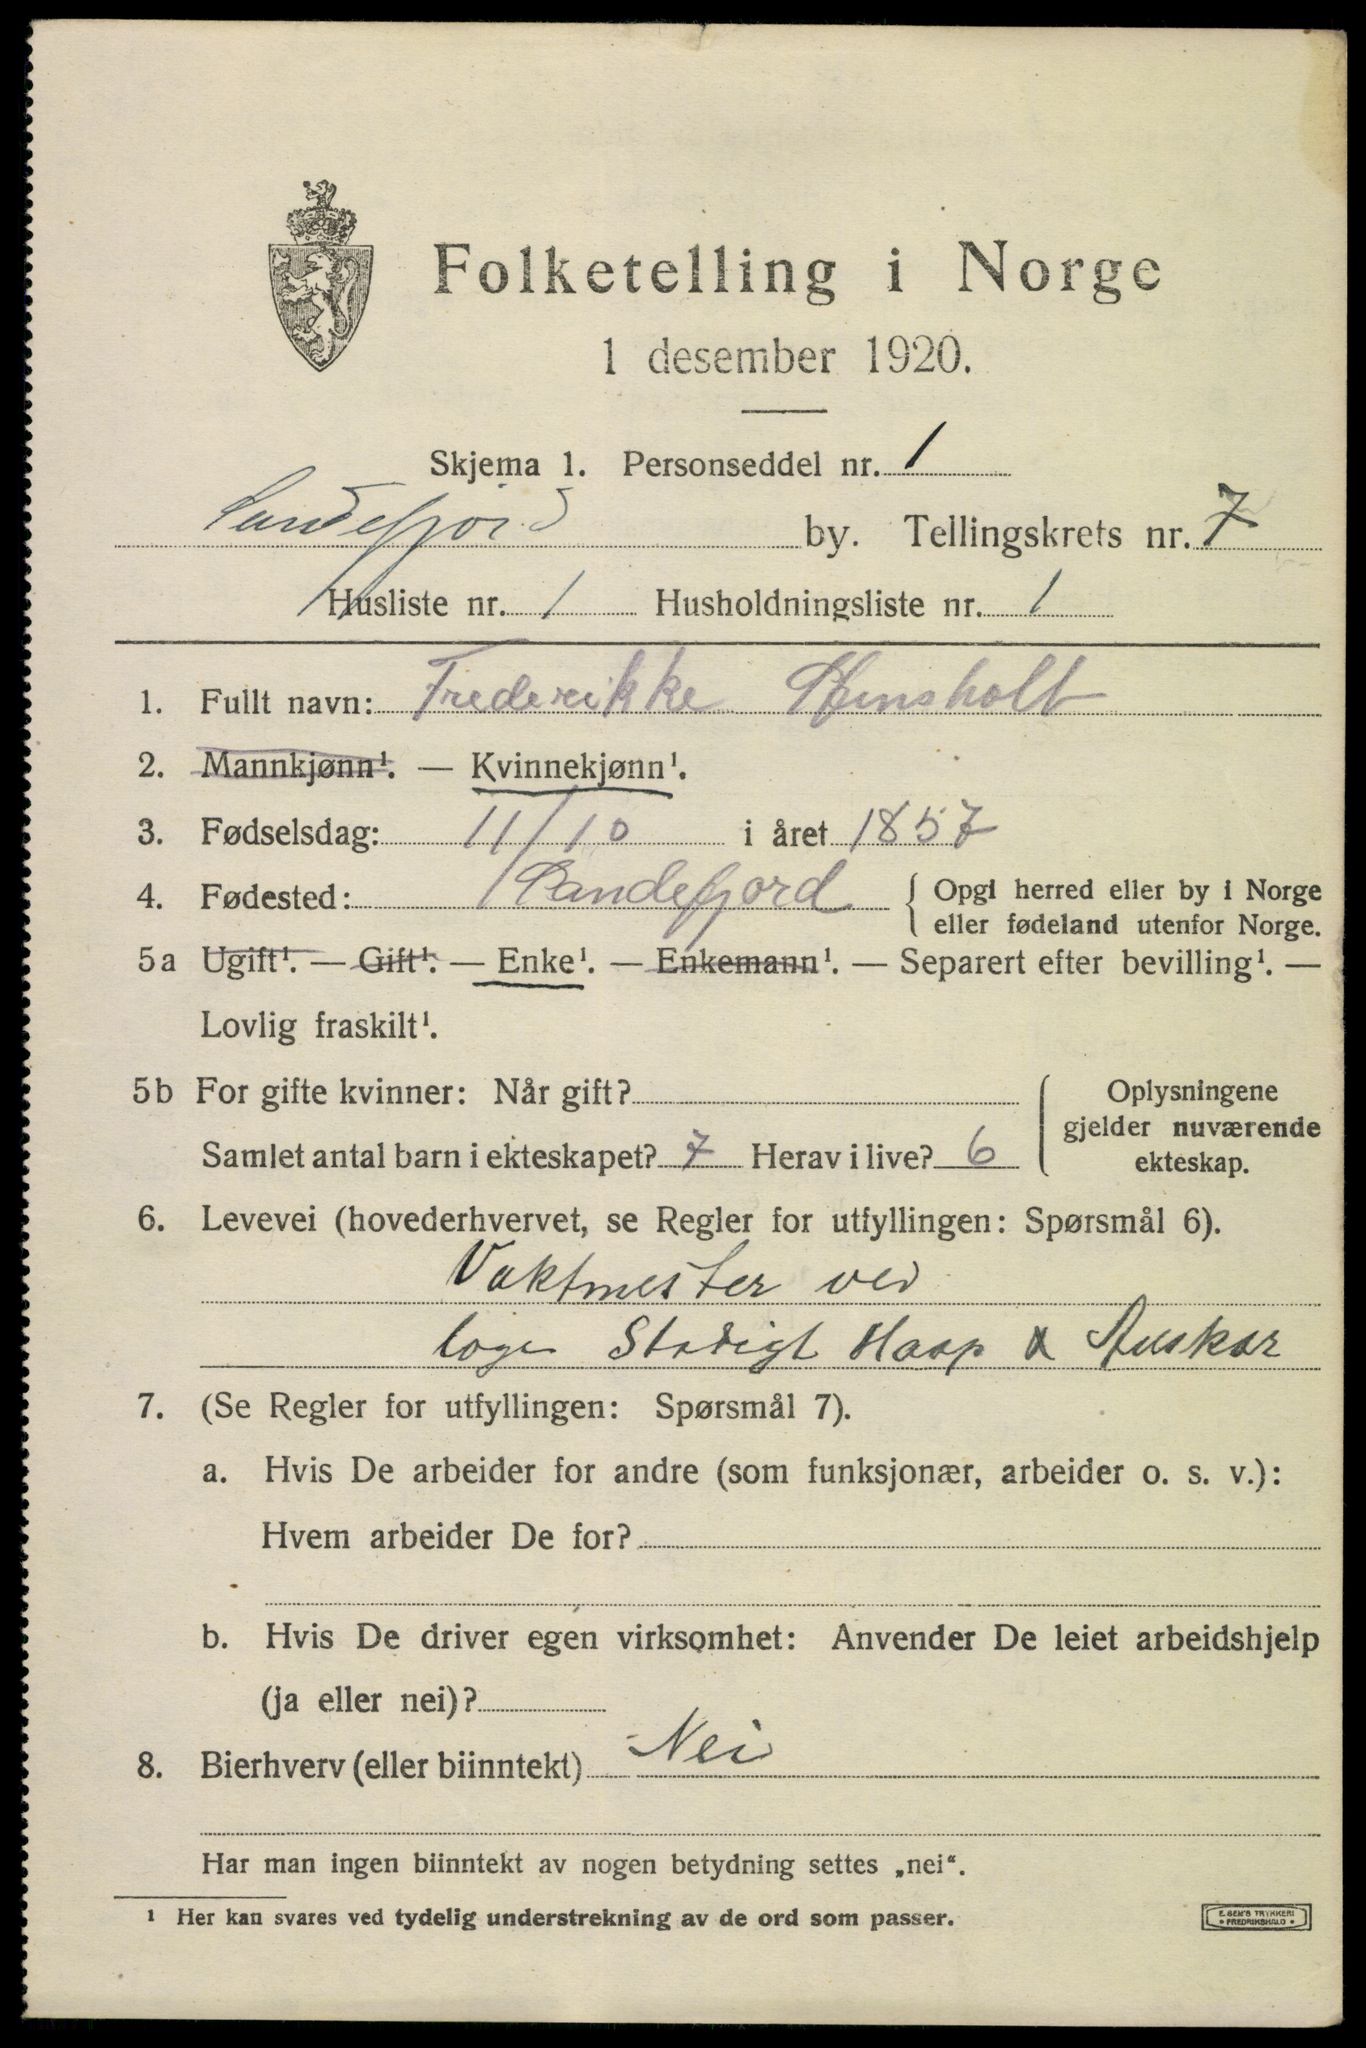 Folketelling i Norge
1 desember 1920.
Skjema 1. Personseddel nr. 1
Sandefjord by. Tellingskrets nr. 7
Husliste nr. 1 Husholdningsliste nr. 1
1. Fullt navn: Frederikke Stensholt
2. Mannkjønn¹. — Kvinnekjønn¹.
3. Fødselsdag: 11/10 i året 1857
4. Fødested: Sandefjord { Opgi herred eller by i Norge
eller fødeland utenfor Norge.
5a Ugift¹. — Gift¹. — Enke¹. — Enkemann¹. — Separert efter bevilling¹. —
Lovlig fraskilt¹.
5b For gifte kvinner: Når gift?
Samlet antal barn i ekteskapet? 7 Herav i live? 6
Oplysningene
gjelder nuværende
ekteskap.
6. Levevei (hovederhvervet, se Regler for utfyllingen: Spørsmål 6).
Vaktmester ved
loge Stadigt Haap &
7. (Se Regler for utfyllingen: Spørsmål 7).
a. Hvis De arbeider for andre (som funksjonær, arbeider o. s. v.):
Hvem arbeider De for?
b. Hvis De driver egen virksomhet: Anvender De leiet arbeidshjelp
(ja eller nei)?
8. Bierhverv (eller biinntekt) Nei
Har man ingen biinntekt av nogen betydning settes „nei“.
¹ Her kan svares ved tydelig understrekning av de ord som passer.
E. SEM'S TRYKKERI
FREDRIKSHALD